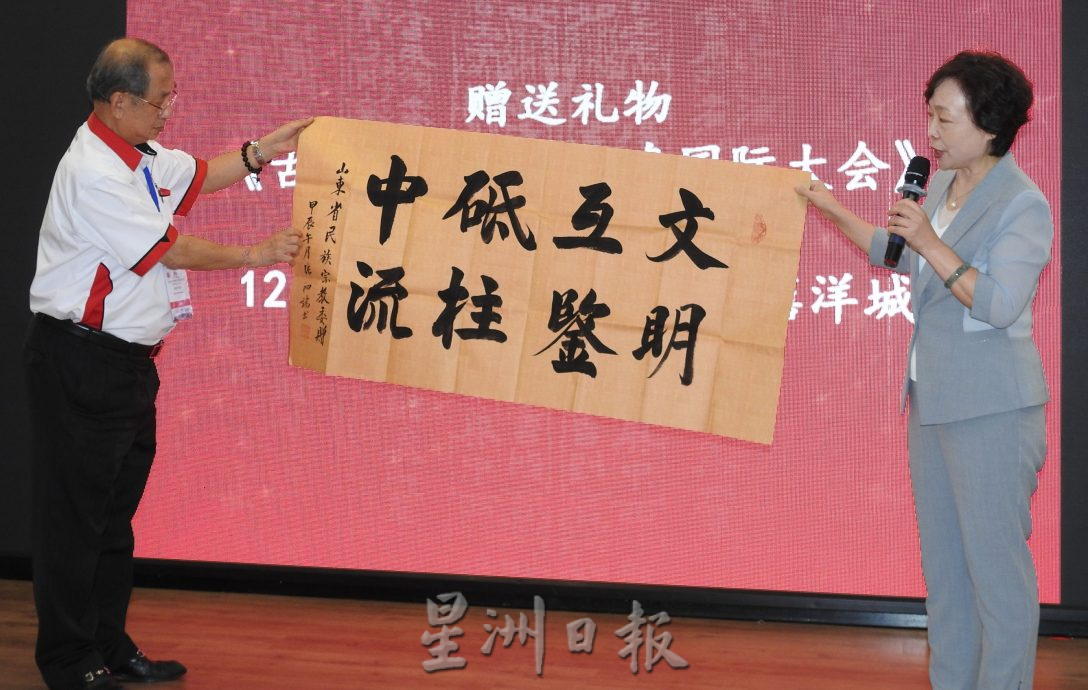 赠送礼物
《古 国际大会》
12 海洋城
文明
互鉴
砥柱
中流
山東省民族宗教委
甲辰午月 书
星洲日报